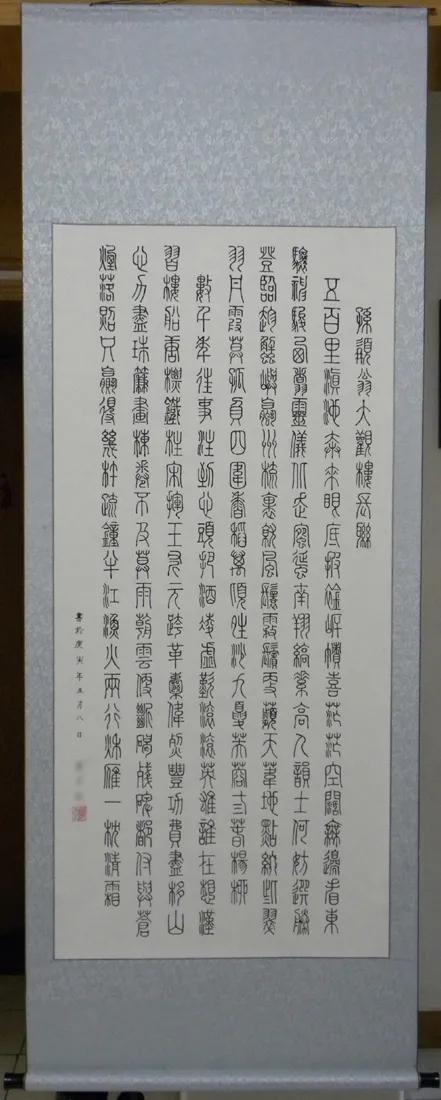 孫髯翁大觀樓長聯
五百里滇池奔來眼底披襟岸幘喜茫茫空闊無邊看東
驤神駿西翥靈儀北走蜿蜒南翔縞素高人韻士何妨選勝
登臨趁蟹嶼螺洲梳裹就風鬟霧鬢更蘋天葦地點綴些翠
羽丹霞莫孤負四圍香稻萬頃晴沙九夏芙蓉三春楊柳
數千年往事注到心頭把酒凌虛歎滾滾英雄誰在想漢
習樓船唐標鐵柱宋揮玉斧元跨革囊偉烈豐功費盡移山
心力盡珠簾畫棟卷不及暮雨朝雲便斷碣殘碑都付與蒼
煙落照只贏得幾杵疏鐘半江漁火兩行秋雁一枕清霜
書於庚寅年五月八日